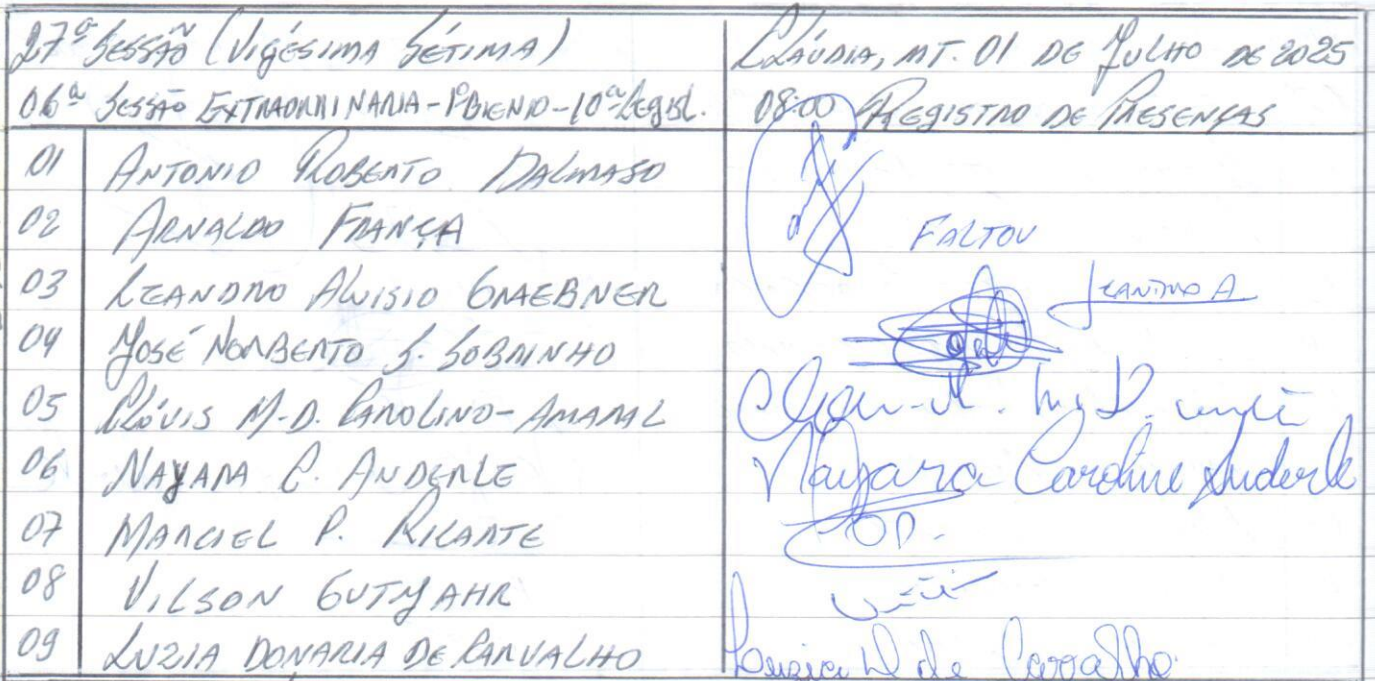 27ª Sessão (Vigésima Sétima)
Cláudia, MT. 01 de Julho de 2025
06ª Sessão Extraordinaria - 1º Biênio - 10ª Legisl.
08:00 Registro de Presenças
01 Antonio Roberto Dalmaso
02 Arnaldo França Faltou
03 Leandro Aluisio Graebner Leandro A
04 José Norberto S. Sobrinho
05 Clóvis M.D. Carolino-Amaral
06 Nayara C. Anderle Nayara Caroline Anderle
07 Marciel P. Ricarte
08 Vilson Gutjahr
09 Luzia Donaria de Carvalho Luzia D de Carvalho